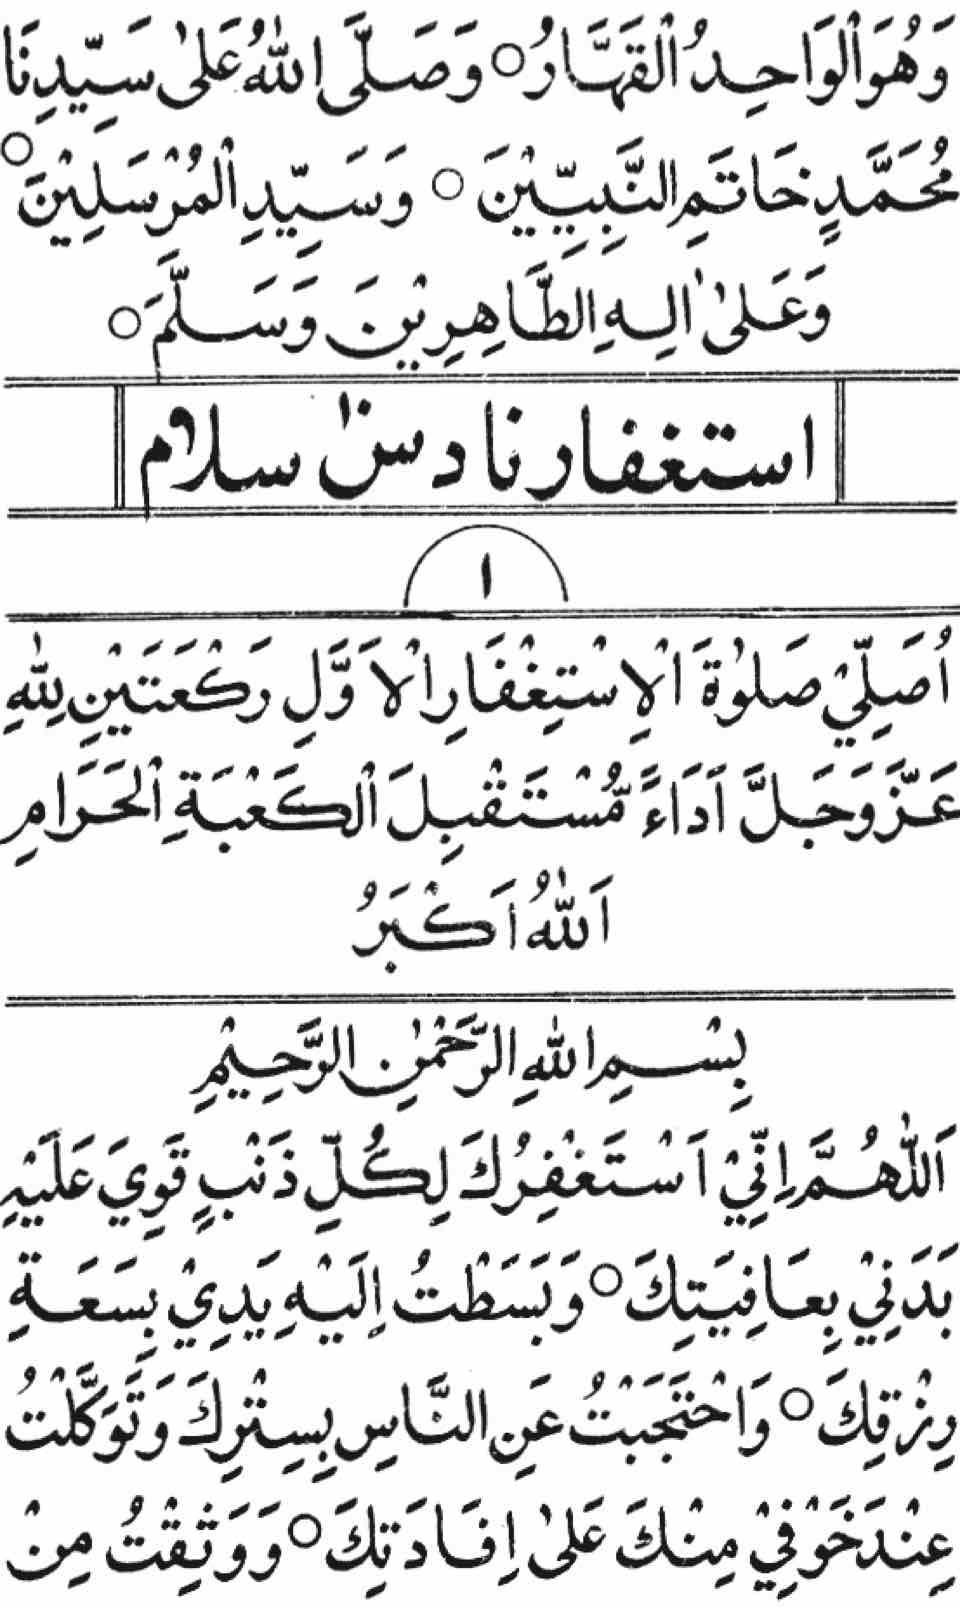 وَهُوَ الْوَاحِدُ الْقَهَّارُ ○ وَصَلَّى اللهُ عَلٰى سَيِّدِنَا
مُحَمَّدٍ خَاتَمِ النَّبِيِّيْنَ ○ وَسَيِّدِ الْمُرْسَلِيْنَ ○
وَعَلٰى اٰلِهِ الطَّاهِرِيْنَ وَسَلَّمَ ○
استغفار نا دس سلام
١
اُصَلِّيْ صَلٰوةَ الْاِسْتِغْفَارِ الْاَوَّلِ رَكْعَتَيْنِ لِلّٰهِ
عَزَّ وَجَلَّ اَدَاءً مُّسْتَقْبِلَ الْكَعْبَةِ الْحَرَامِ
اَللّٰهُ اَكْبَرُ
بِسْمِ اللهِ الرَّحْمٰنِ الرَّحِيْمِ
اَللّٰهُمَّ اِنِّيْ اَسْتَغْفِرُكَ لِكُلِّ ذَنْبٍ قَوِيَ عَلَيْهِ
بَدَنِيْ بِعَافِيَتِكَ ○ وَبَسَطْتُ إِلَيْهِ يَدِيْ بِسَعَةِ
رِزْقِكَ ○ وَاحْتَجَبْتُ عَنِ النَّاسِ بِسِتْرِكَ وَتَوَكَّلْتُ
عِنْدَ خَوْفِيْ مِنْكَ عَلٰى اِفَادَتِكَ ○ وَوَثِقْتُ مِنْ